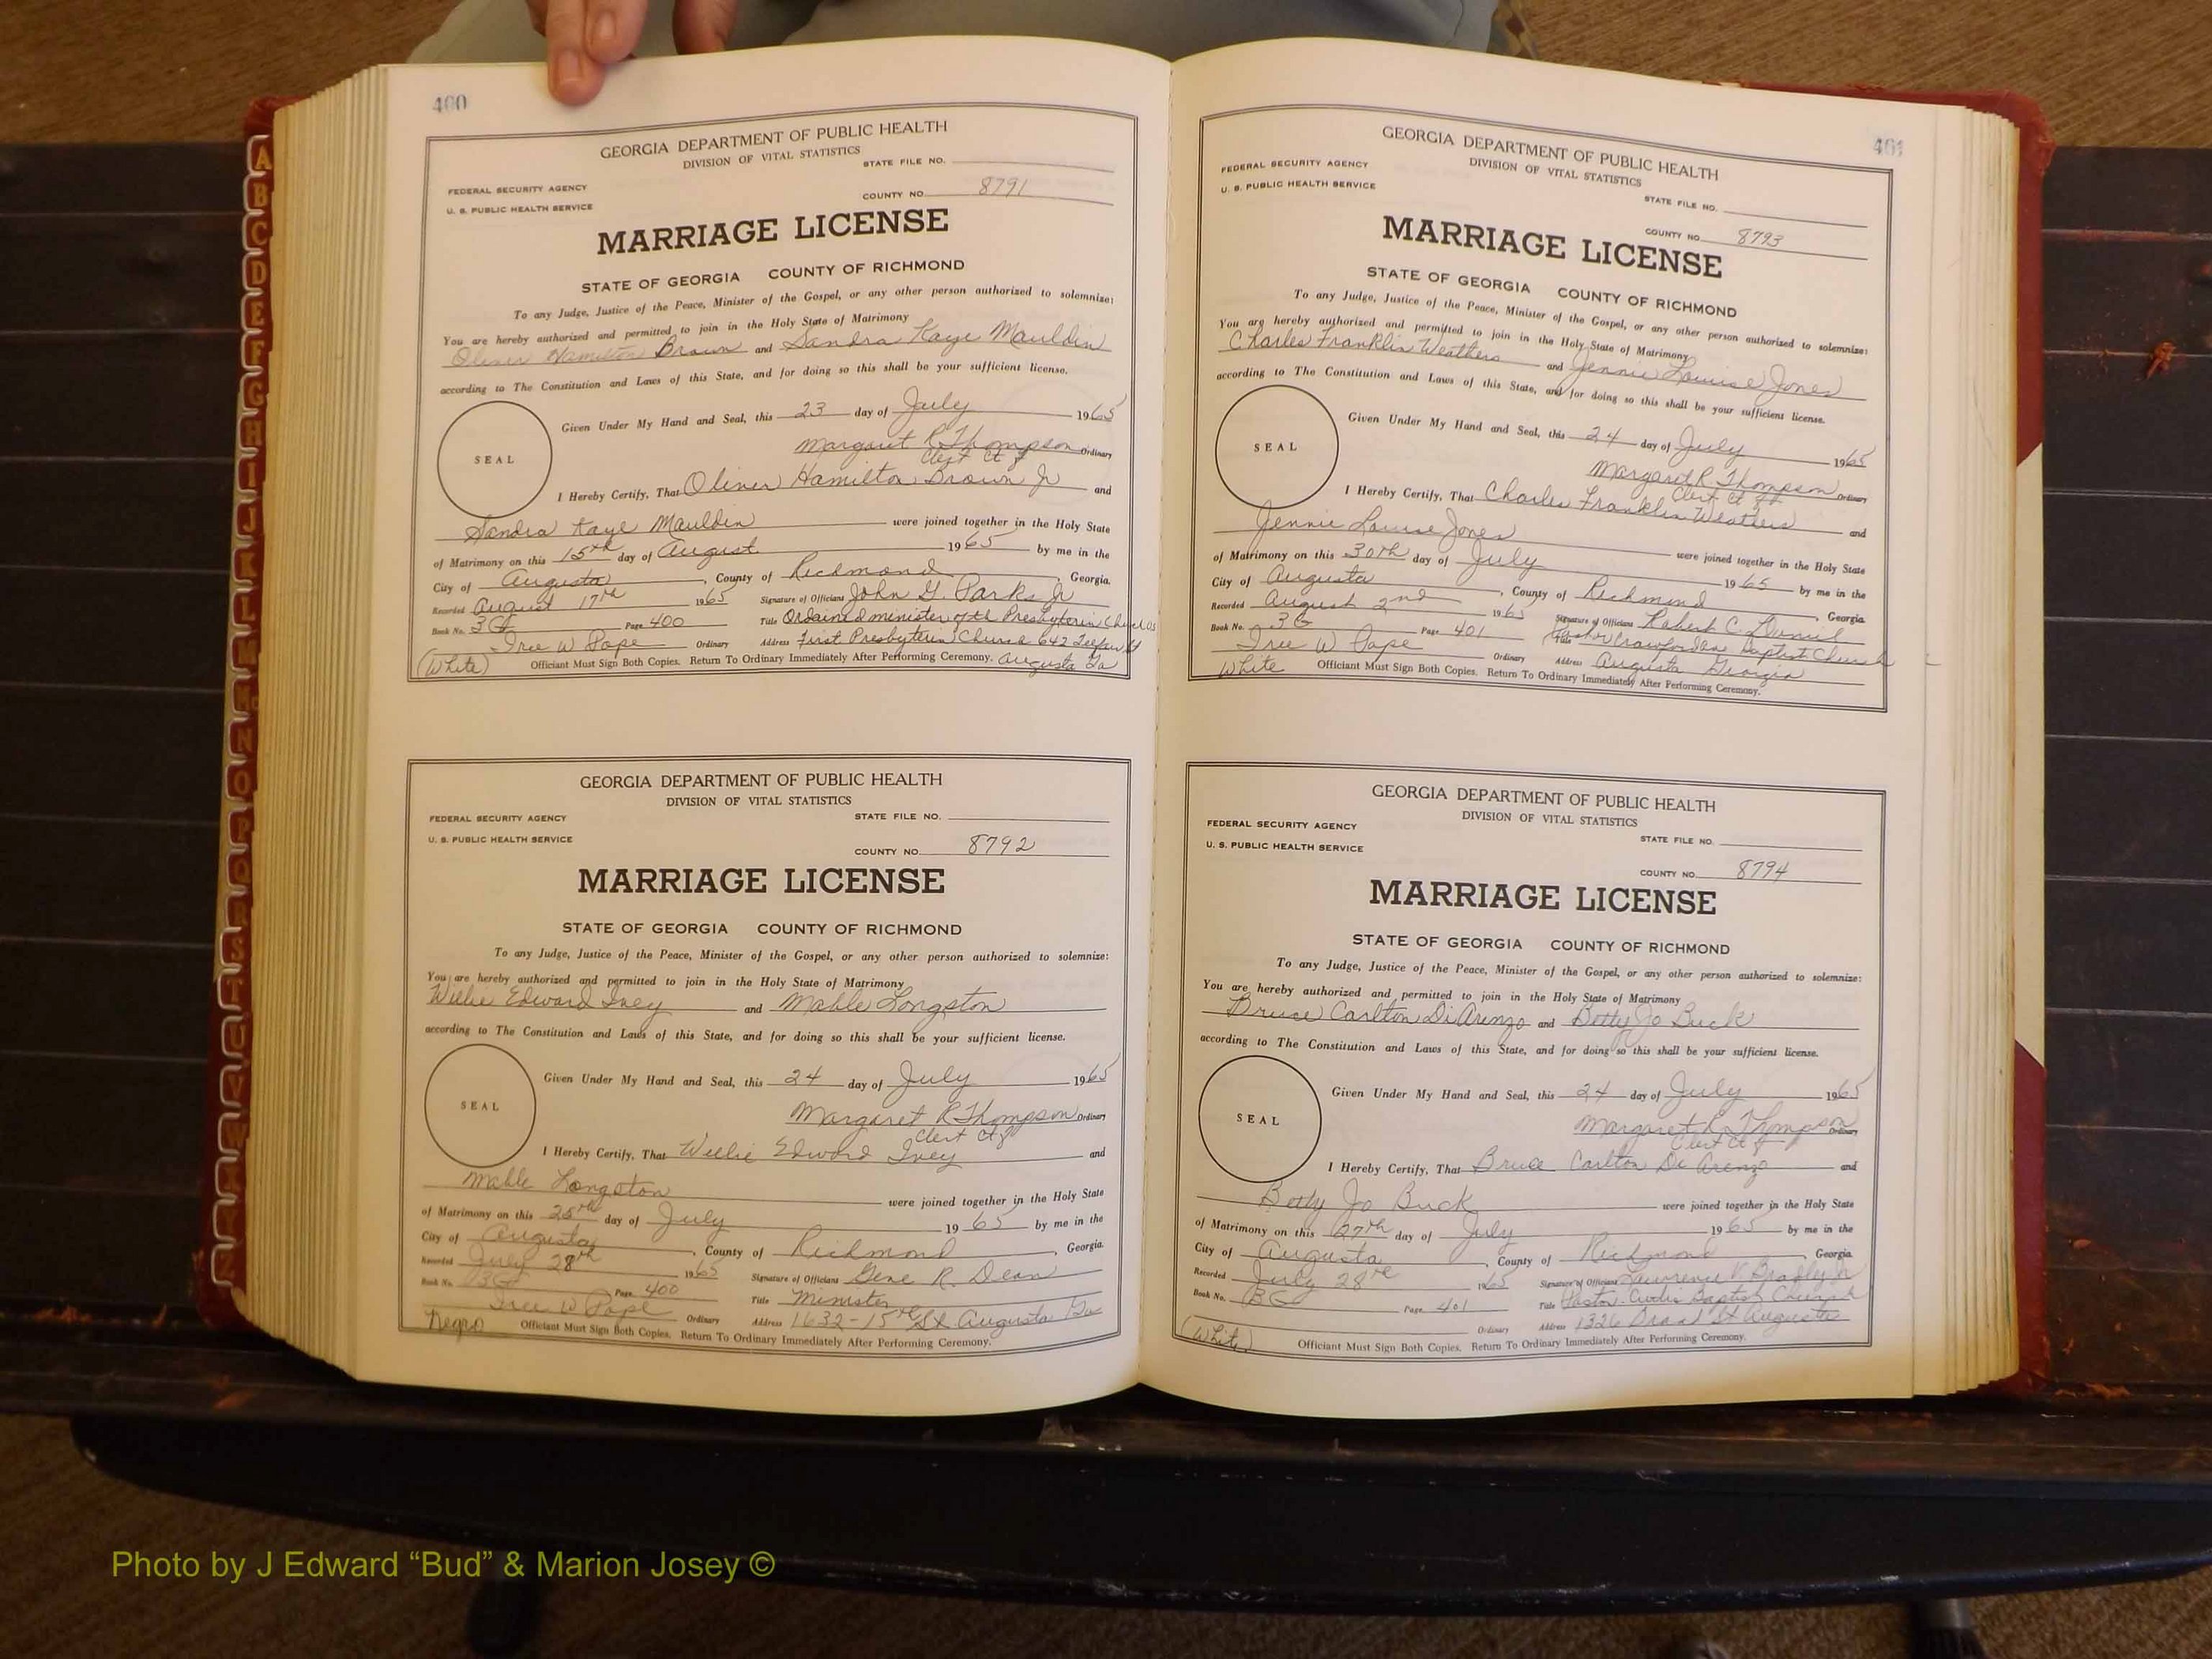 400
GEORGIA DEPARTMENT OF PUBLIC HEALTH
DIVISION OF VITAL STATISTICS
STATE FILE NO.
FEDERAL SECURITY AGENCY
U. S. PUBLIC HEALTH SERVICE
COUNTY NO. 8791
MARRIAGE LICENSE
STATE OF GEORGIA COUNTY OF RICHMOND
To any Judge, Justice of the Peace, Minister of the Gospel, or any other person authorized to solemnize:
You are hereby authorized and permitted to join in the Holy State of Matrimony
Oliver Hamilton Brown and Sandra Kaye Mauldin
according to The Constitution and Laws of this State, and for doing so this shall be your sufficient license.
Given Under My Hand and Seal, this 23 day of July 1965
SEAL
Margaret R Thompson Ordinary
Clert Ct
I Hereby Certify, That Oliver Hamilton Brown Jr and
Sandra Kaye Mauldin were joined together in the Holy State
of Matrimony on this 15th day of August 1965 by me in the
City of Augusta, County of Richmond, Georgia.
Recorded August 17th 1965 Signature of Officiant John G. Parks Jr
Book No. 3G Page 400 Title Ordained minister of th Presbyterin Church US
W Pape Ordinary Address First Presbyterin Church 642 Telfair St
(White) Officiant Must Sign Both Copies. Return To Ordinary Immediately After Performing Ceremony. Augusta Ga
GEORGIA DEPARTMENT OF PUBLIC HEALTH
DIVISION OF VITAL STATISTICS
STATE FILE NO.
FEDERAL SECURITY AGENCY
U. S. PUBLIC HEALTH SERVICE
COUNTY NO. 8792
MARRIAGE LICENSE
STATE OF GEORGIA COUNTY OF RICHMOND
To any Judge, Justice of the Peace, Minister of the Gospel, or any other person authorized to solemnize:
You are hereby authorized and permitted to join in the Holy State of Matrimony
Willie Edward Ivey and Mable Longston
according to The Constitution and Laws of this State, and for doing so this shall be your sufficient license.
Given Under My Hand and Seal, this 24 day of July 1965
SEAL
Margaret R Thompson Ordinary
Clert Ct
I Hereby Certify, That Willie Edward Ivey and
Mable Longston were joined together in the Holy State
of Matrimony on this 25th day of July 1965 by me in the
City of Augusta, County of Richmond, Georgia.
Recorded July 28th 1965 Signature of Officiant Gene R. Dean
Book No. 3G Page 400 Title Minister
W Pape Ordinary Address 1632-15th St Augusta Ga
Negro Officiant Must Sign Both Copies. Return To Ordinary Immediately After Performing Ceremony.
401
GEORGIA DEPARTMENT OF PUBLIC HEALTH
DIVISION OF VITAL STATISTICS
FEDERAL SECURITY AGENCY
U. S. PUBLIC HEALTH SERVICE
STATE FILE NO.
COUNTY NO. 8793
MARRIAGE LICENSE
STATE OF GEORGIA COUNTY OF RICHMOND
To any Judge, Justice of the Peace, Minister of the Gospel, or any other person authorized to solemnize:
You are hereby authorized and permitted to join in the Holy State of Matrimony
Charles Franklin Weathers and Jennie Louise Jones
according to The Constitution and Laws of this State, and for doing so this shall be your sufficient license.
Given Under My Hand and Seal, this 24 day of July 1965
SEAL
Margaret R Thompson Ordinary
Clert Ct
I Hereby Certify, That Charles Franklin Weathers and
Jennie Louise Jones were joined together in the Holy State
of Matrimony on this 30th day of July 1965 by me in the
City of Augusta, County of Richmond, Georgia.
Recorded August 2nd 1965 Signature of Officiant Robert C.
Book No. 3G Page 401 Title Pastor Baptist Church
W Pape Ordinary Address Augusta Georgia
White Officiant Must Sign Both Copies. Return To Ordinary Immediately After Performing Ceremony.
GEORGIA DEPARTMENT OF PUBLIC HEALTH
DIVISION OF VITAL STATISTICS
FEDERAL SECURITY AGENCY
U. S. PUBLIC HEALTH SERVICE
STATE FILE NO.
COUNTY NO. 8794
MARRIAGE LICENSE
STATE OF GEORGIA COUNTY OF RICHMOND
To any Judge, Justice of the Peace, Minister of the Gospel, or any other person authorized to solemnize:
You are hereby authorized and permitted to join in the Holy State of Matrimony
Bruce Carlton Di Arenzo and Betty Jo Buck
according to The Constitution and Laws of this State, and for doing so this shall be your sufficient license.
Given Under My Hand and Seal, this 24 day of July 1965
SEAL
Margaret R Thompson Ordinary
Clert Ct
I Hereby Certify, That Bruce Carlton Di Arenzo and
Betty Jo Buck were joined together in the Holy State
of Matrimony on this 27th day of July 1965 by me in the
City of Augusta, County of Richmond, Georgia.
Recorded July 28th 1965 Signature of Officiant Lawrence V. Bradley Jr
Book No. 3G Page 401 Title Pastor. Curtis Baptist Church
Ordinary Address 1326 Broad St Augusta
(White) Officiant Must Sign Both Copies. Return To Ordinary Immediately After Performing Ceremony.
A
B
C
D
E
F
G
H
I
J
K
L
M
Mc
N
O
P
Q
R
S
T
U
V
W
Photo by J Edward “Bud” & Marion Josey ©